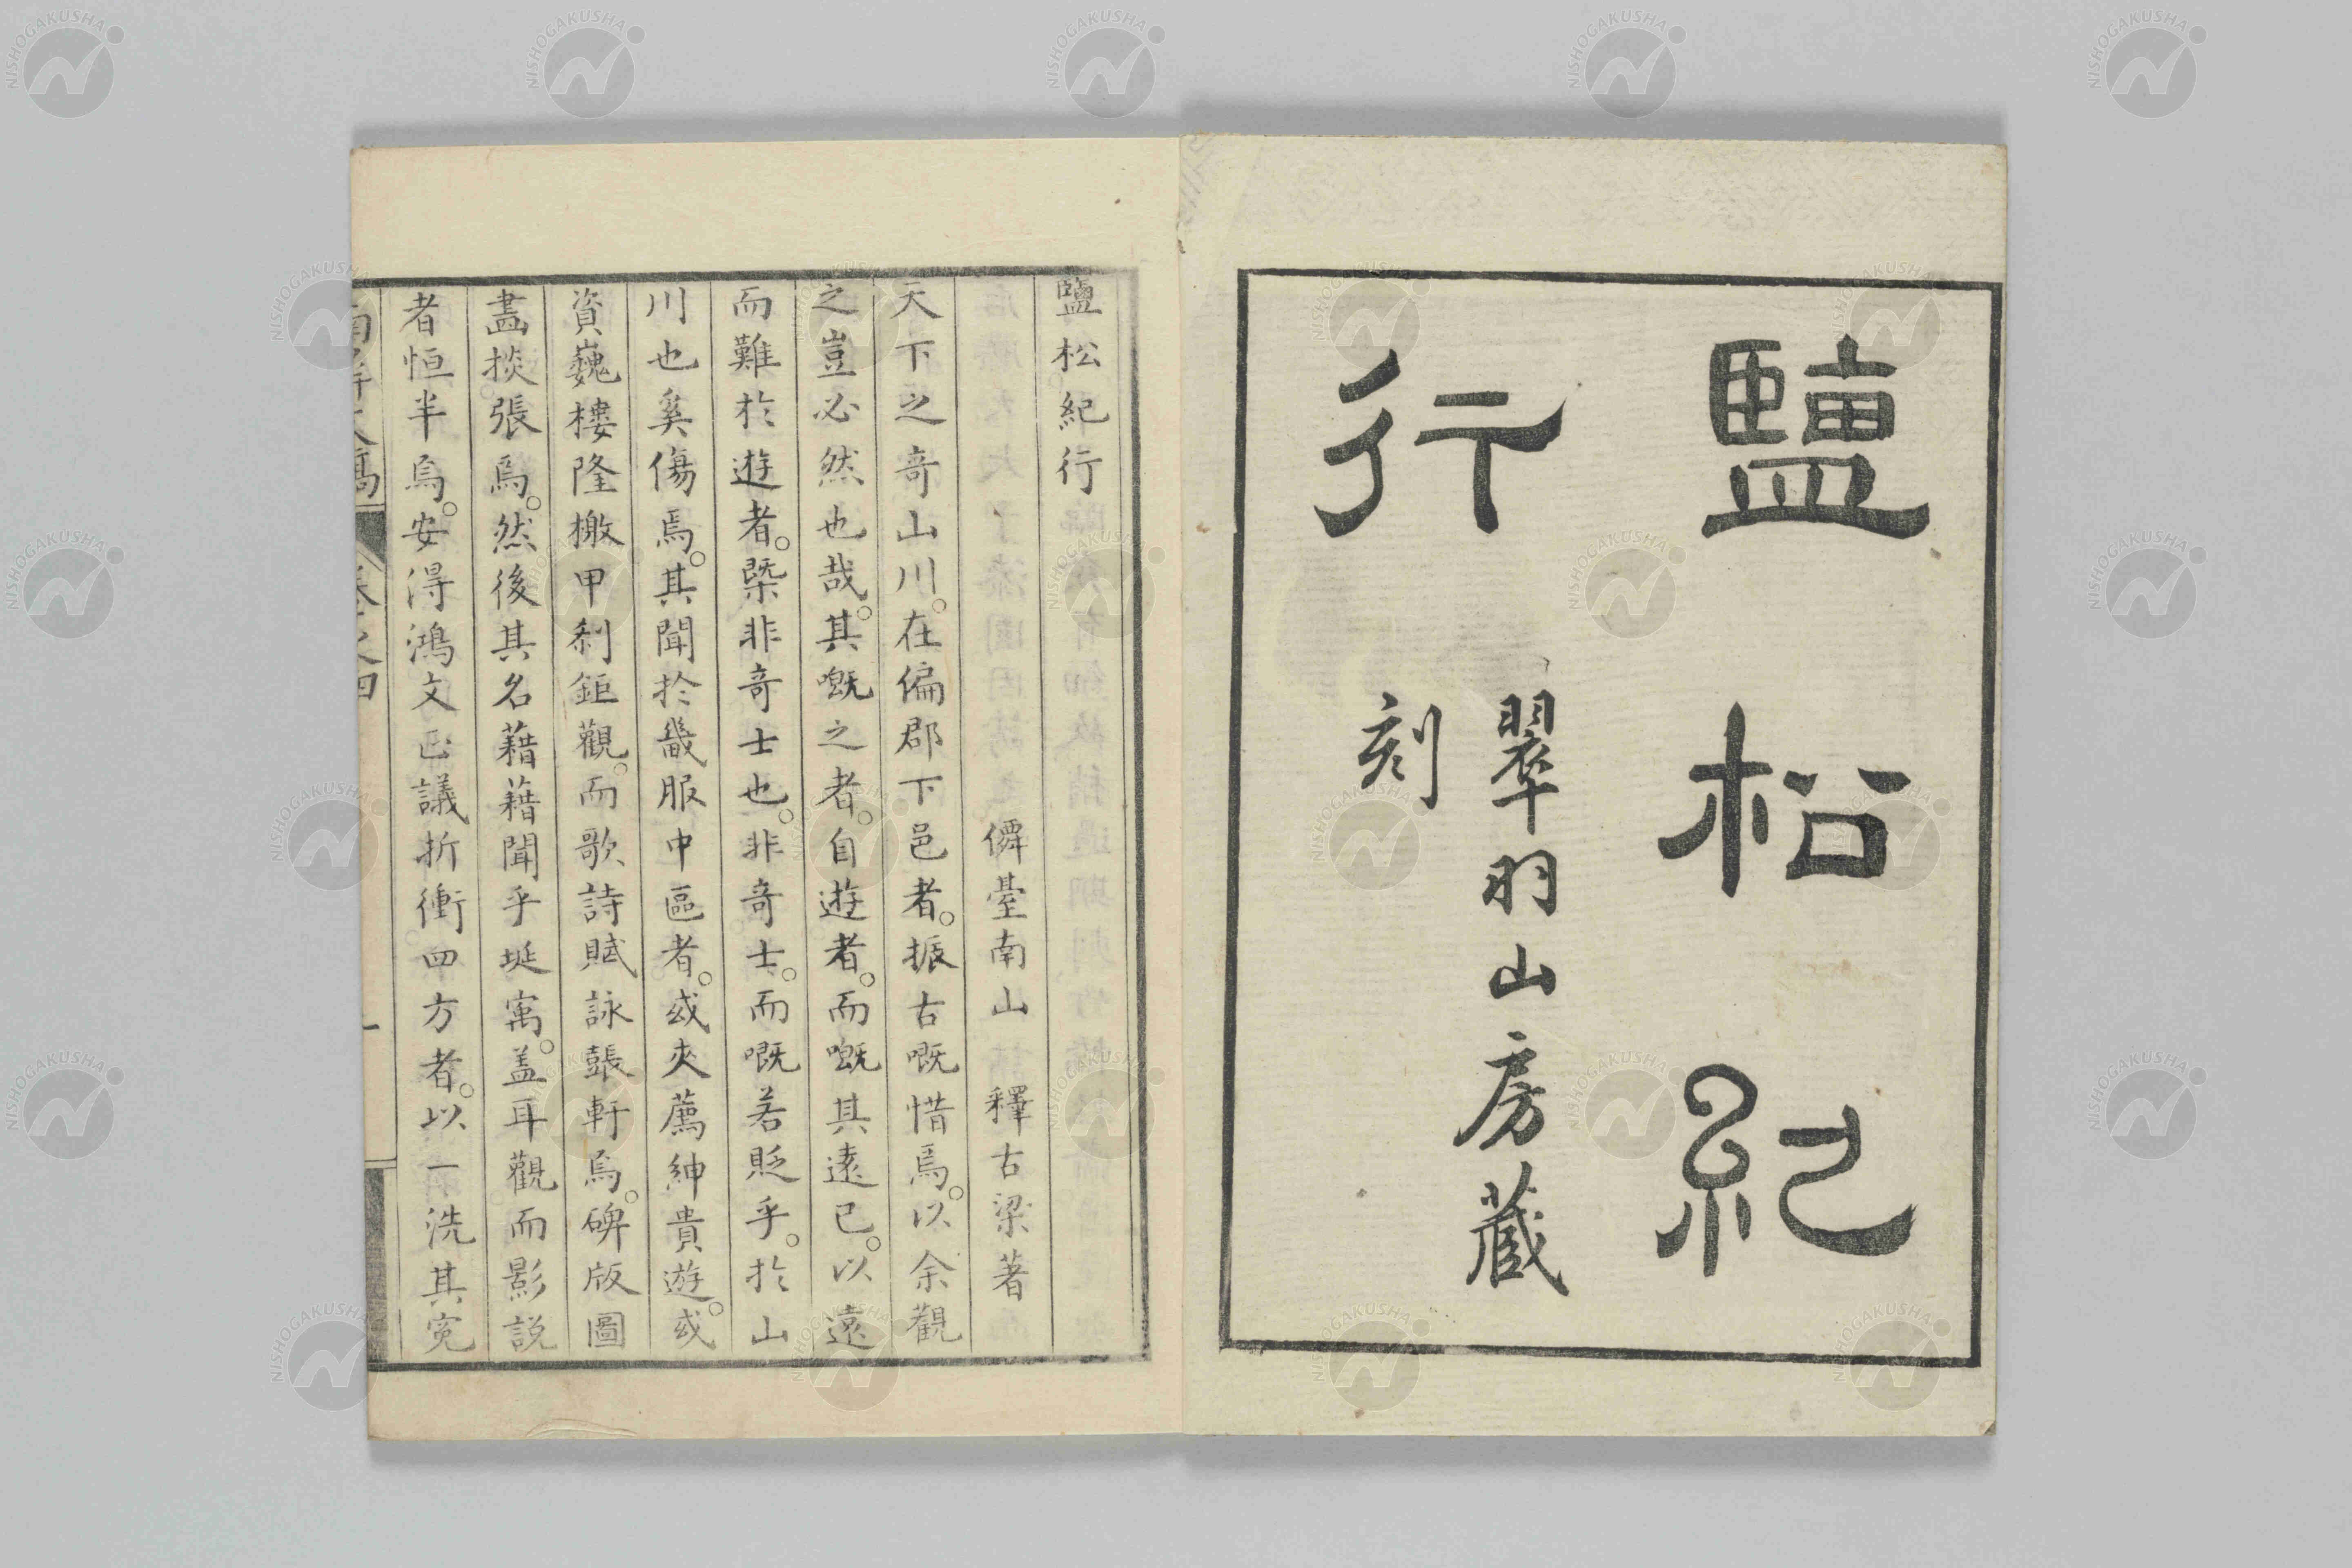 鹽松紀
行
翠羽山房藏
刻
鹽松紀行
僲臺南山 釋古梁著
天下之奇山川。在偏郡下邑者。振古嘅惜焉。以余觀
之豈必然也哉。其嘅之者。自遊者。而嘅其遠已。以遠
而難於遊者。槩非奇士也。非奇士。而嘅若貶乎。於山
川也奚傷焉。其聞於畿服中區者。或夾薦紳貴遊。或
資巍樓隆檄甲刹鉅觀。而歌詩賦詠鼚軒焉。碑版圖
畫掞張焉。然後其名藉藉聞乎埏寓。盖耳觀而影説
者恒半焉。安得鴻文正議折衝四方者。以一洗其寃
卷之四
一
NISHOGAKUSHA